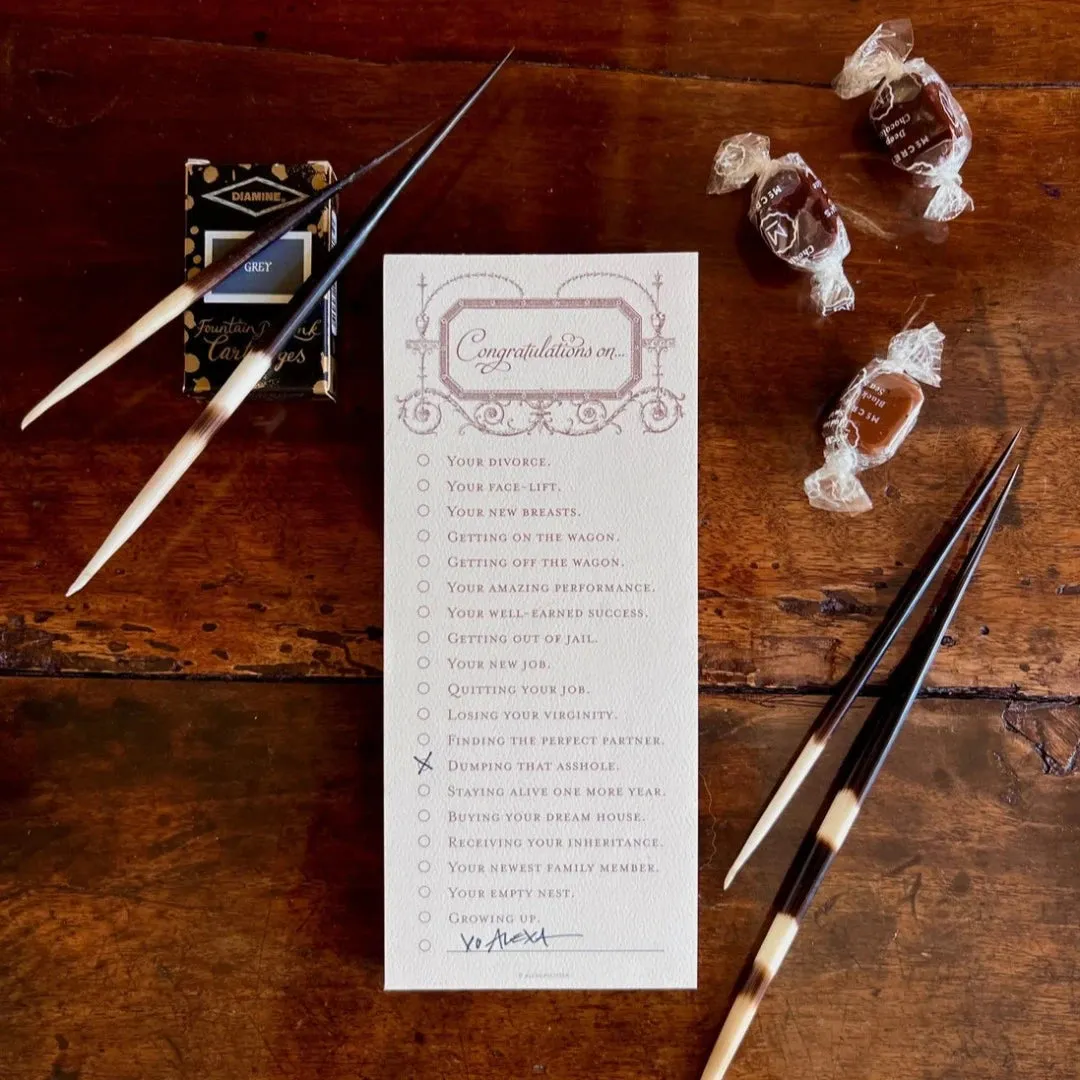 DIAMINE
GREY
Fountain Pen Ink
Cartridges
Congratulations on...
YOUR DIVORCE.
YOUR FACE-LIFT.
YOUR NEW BREASTS.
GETTING ON THE WAGON.
GETTING OFF THE WAGON.
YOUR AMAZING PERFORMANCE.
YOUR WELL-EARNED SUCCESS.
GETTING OUT OF JAIL.
YOUR NEW JOB.
QUITTING YOUR JOB.
LOSING YOUR VIRGINITY.
FINDING THE PERFECT PARTNER.
X DUMPING THAT ASSHOLE.
STAYING ALIVE ONE MORE YEAR.
BUYING YOUR DREAM HOUSE.
RECEIVING YOUR INHERITANCE.
YOUR NEWEST FAMILY MEMBER.
YOUR EMPTY NEST.
GROWING UP.
XO ALEXA
Deep
MCCRE
MCC
Black
Sea
MCCR